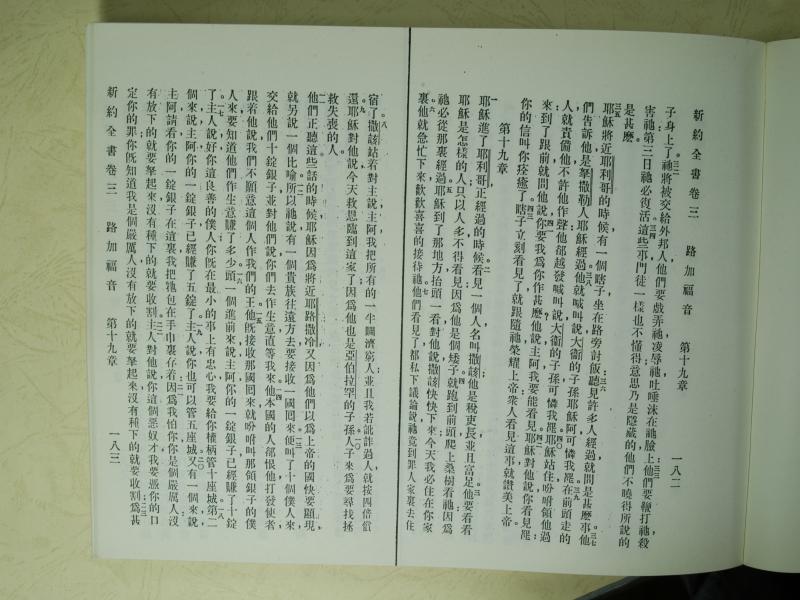 新約全書卷三 路加福音 第十九章 一八二
子身上了祂將被交給外邦人他們要戲弄祂凌辱祂吐唾沫在祂臉上他們要鞭打祂殺
害祂第三日祂必復活這些事門徒一樣也不懂得意思乃是隱藏的他們不曉得所說的
是甚麽
耶穌將近耶利哥的時候有一個瞎子坐在路旁討飯聽見許多人經過就問是甚麽事他
們告訴他是拏撒勒人耶穌經過他就喊叫說大衞的子孫耶穌阿可憐我罷在前頭走的
人就責備他不許他作聲他卻越發喊叫說大衞的子孫可憐我罷耶穌站住吩咐領他過
來到了跟前就問他說你要我爲你作甚麽他說主阿我要能看見耶穌對他說你看見罷
你的信叫你痊癒了瞎子立刻看見了就跟隨祂榮耀上帝衆人看見這事就讚美上帝。
第十九章
耶穌進了耶利哥正經過的時候看見一個人名叫撒該他是稅吏長並且富足他要看看
耶穌是怎樣的人只以人多不得看見因爲他是個矮子就跑到前頭爬上桑樹看祂因爲
祂必從那裏經過耶穌到了那地方抬頭一看對他說撒該快快下來今天我必住在你家
裏他就急忙下來歡歡喜喜的接待祂他們看見了都私下議論說祂竟到罪人家裏去住
宿了撒該站着對主說主阿我把所有的一半賙濟窮人並且我若訛詐過人就按四倍償
還耶穌對他說今天救恩臨到這家了因爲他也是亞伯拉罕的子孫人子來爲要尋找拯
救失喪的人。
他們正聽這些話的時候耶穌因爲將近耶路撒冷又因爲他們以爲上帝的國快要顯現
就另說一個比喻所以祂說有一個貴族往遠方去要接收一國囘來便叫了十個僕人來
交給他們十錠銀子並對他們說你們去作生意直等我來他本國的人卻恨他打發使者
跟着他說我們不願意這個人作我們的王他旣接收那國囘來就吩咐叫那領銀子的僕
人來要知道他們作生意賺了多少頭一個進前來說主阿你的一錠銀子已經賺了十錠
了主人說好你這良善的僕人你旣在最小的事上有忠心我要給你權柄管十座城第二
個來說主阿你的一錠銀子已經賺了五錠了主人說你也可以管五座城又有一個來說
主阿請看你的一錠銀子在這裏我把牠包在手巾裏存着因爲我怕你你是個嚴厲人沒
有放下的就要拏起來沒有種下的就要收割主人對他說你這個惡奴才我要憑你的口
定你的罪你旣知道我是個嚴厲人沒有放下的就要拏起來沒有種下的就要收割爲甚
新約全書卷三 路加福音 第十九章 一八三